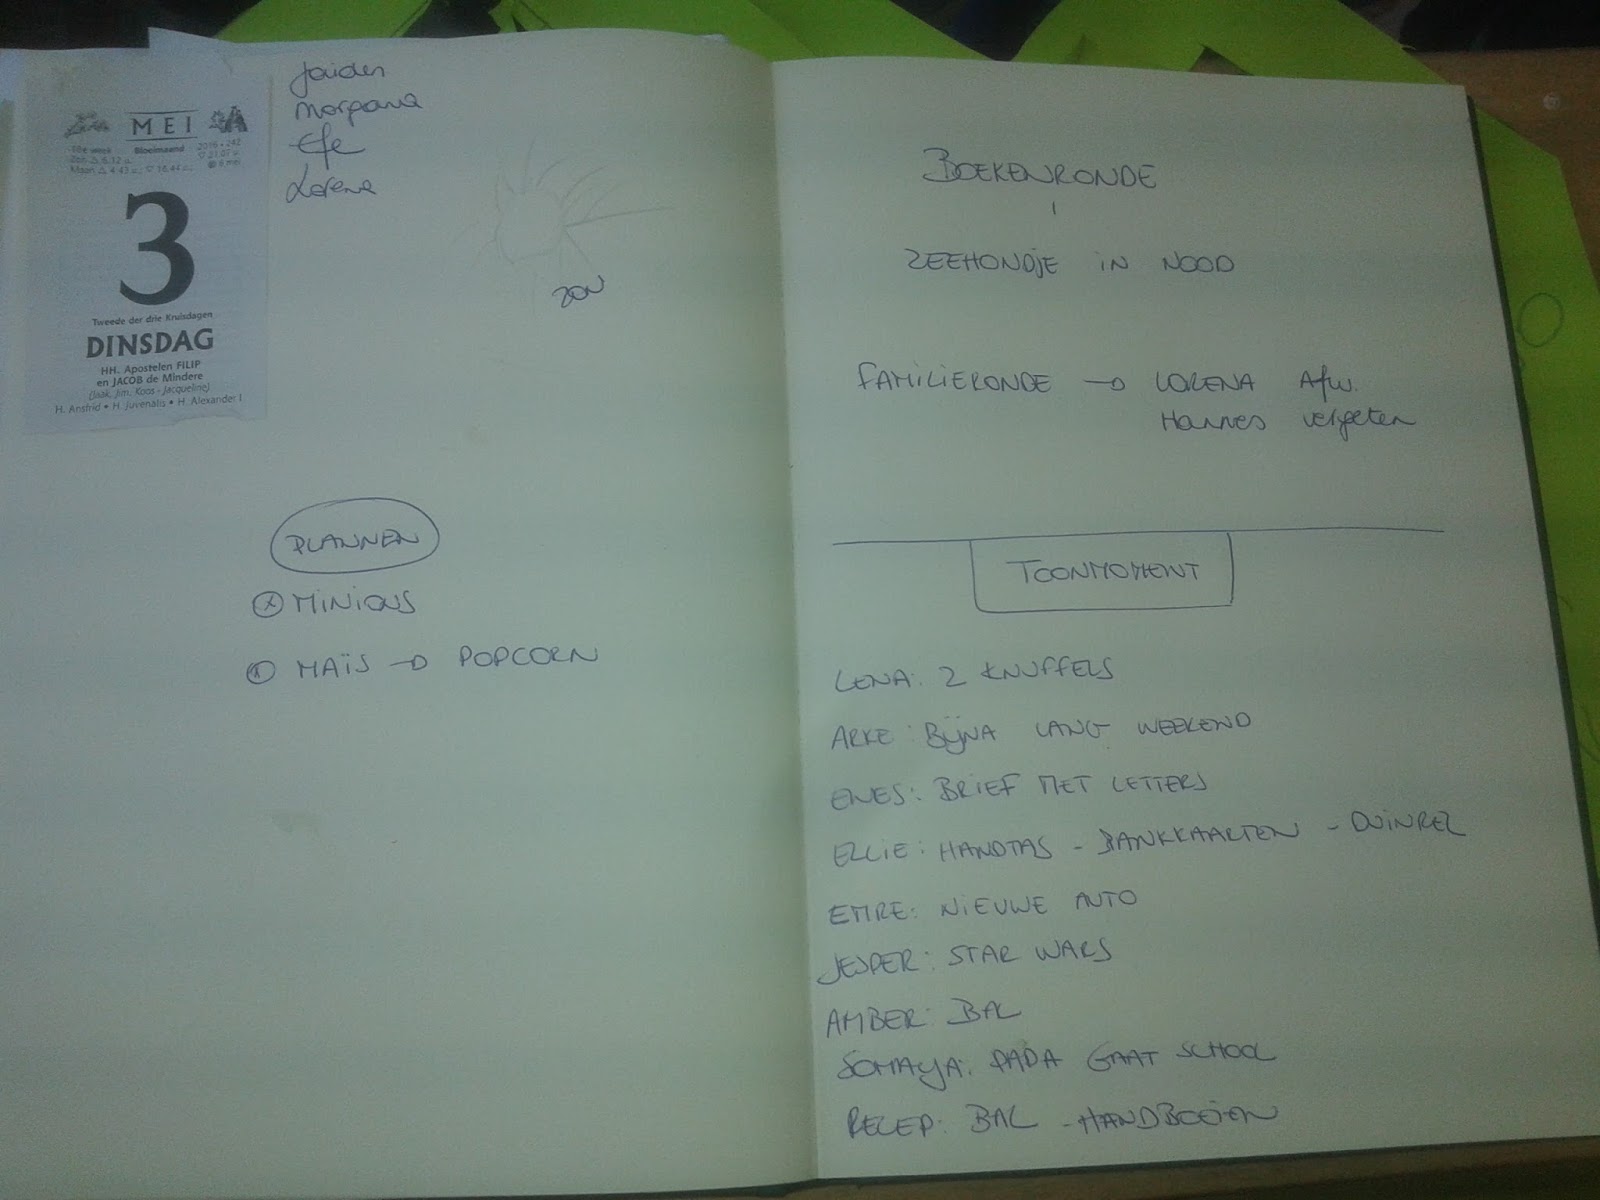 MEI
18e week
Bloeimaand
2016 • 242
Zon
Maan
3
Tweede der drie Kruisdagen
DINSDAG
HH. Apostelen FILIP
en JACOB de Mindere
(Jaak, Jim, Koos - Jacqueline)
H. Ansfrid • H. Juvenalis • H. Alexander I
Jaiden
Morgana
Efe
Lorena
ZON
PLANNEN
MINIONS
MAÏS → POPCORN
BOEKENRONDE
ZEEHONDJE IN NOOD
FAMILIERONDE → LORENA Afw.
Hannes vergeten
TOONMOMENT
LENA: 2 KNUFFELS
ARKE: BIJNA LANG WEEKEND
ENES: BRIEF MET LETTERS
ELLIE: HANDTAS - BANKKAARTEN - DUINREL
EMRE: NIEUWE AUTO
JESPER: STAR WARS
AMBER: BAL
SOMAYA: PAPA GAAT SCHOOL
RECEP: BAL - HANDBOEIEN